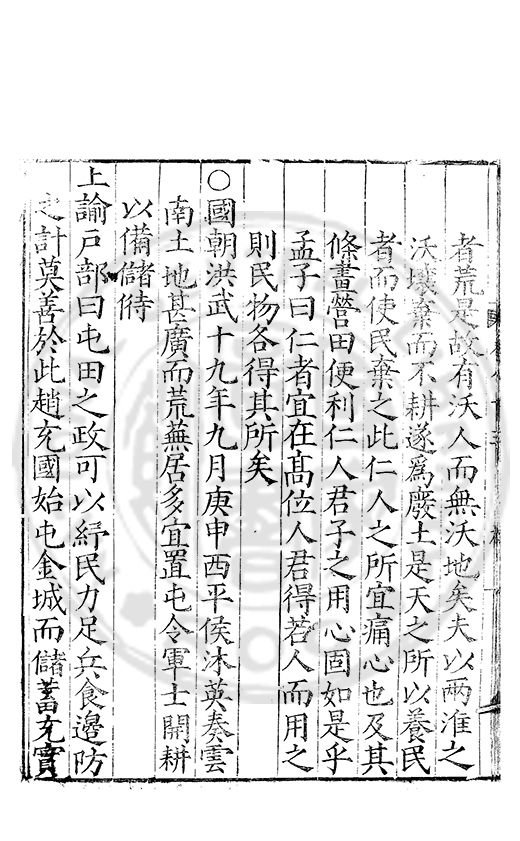 者荒是故有沃人而無沃地矣夫以兩淮之
沃壤棄而不耕遂爲廢土是天之所以養民
者而使民棄之此仁人之所宜痛心也及其
條畫營田便利仁人君子之用心固如是乎
孟子曰仁者宜在高位人君得若人而用之
則民物各得其所矣
○國朝洪武十九年九月庚申西平侯沐英奏雲
南土地甚廣而荒蕪居多宜置屯令軍士開耕
以備儲偫
上諭戸部曰屯田之政可以紓民力足兵食邊防
之計莫善於此趙充國始屯金城而儲蓄充實